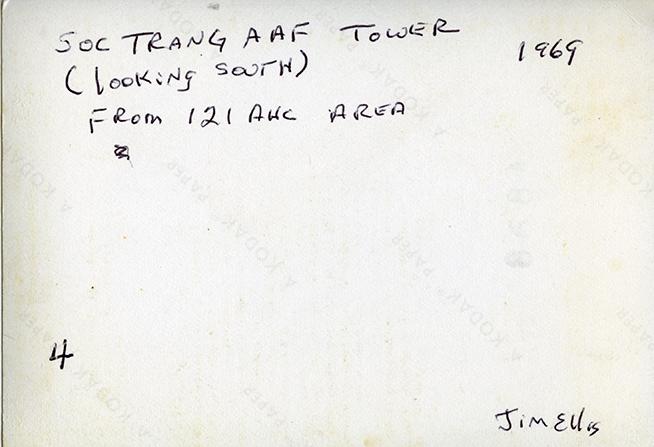 SOC TRANG AAF TOWER 1969
(looking SOUTH)
FROM 121 AHC AREA
4
Jim Ellis
A KODAK PAPER
A KODAK PAPER
A KODAK PAPER
A KODAK PAPER